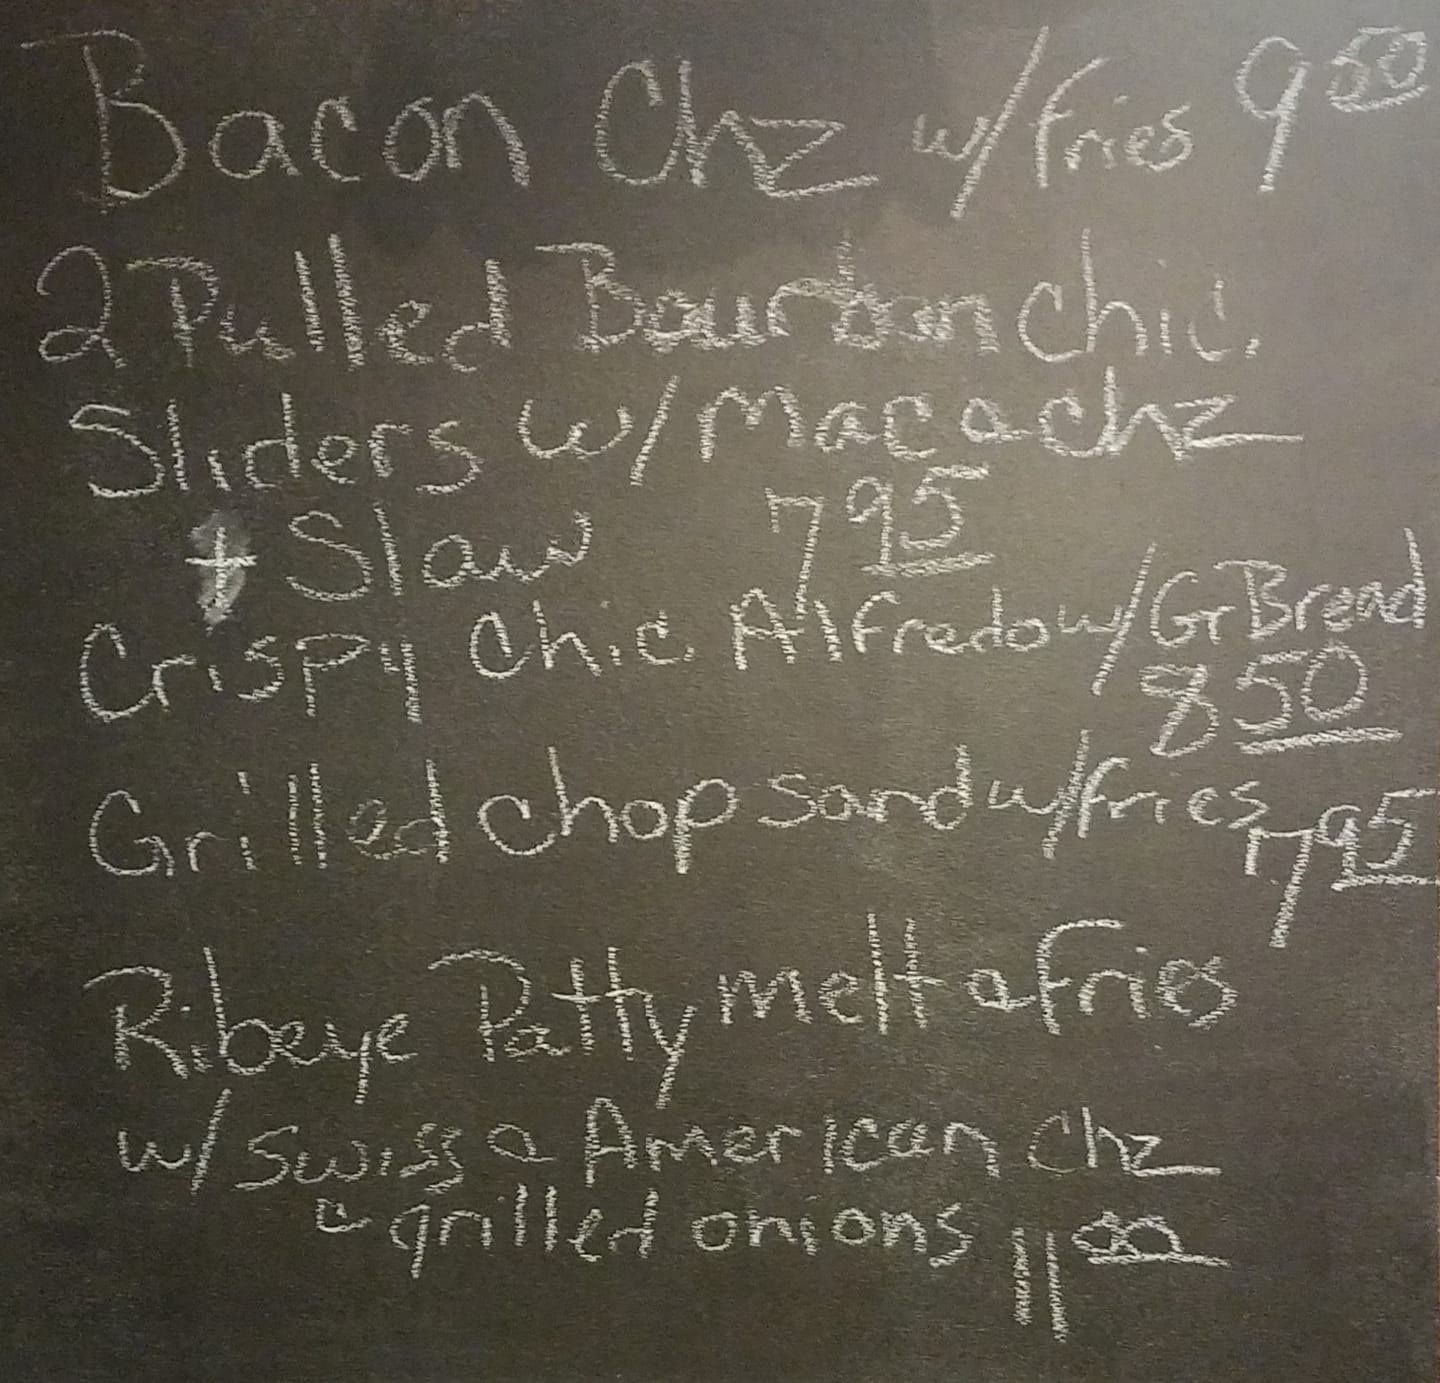 Bacon Chz w/fries 9 50
2 Pulled Bourbon Chic.
Sliders w/Mac a chz
+ Slaw 7 95
Crispy Chic. Alfredo w/Gr Bread
8 50
Grilled chop sand w/fries
7 95
Ribeye Patty melt a fries
w/ swiss a American chz
c grilled onions 11 00